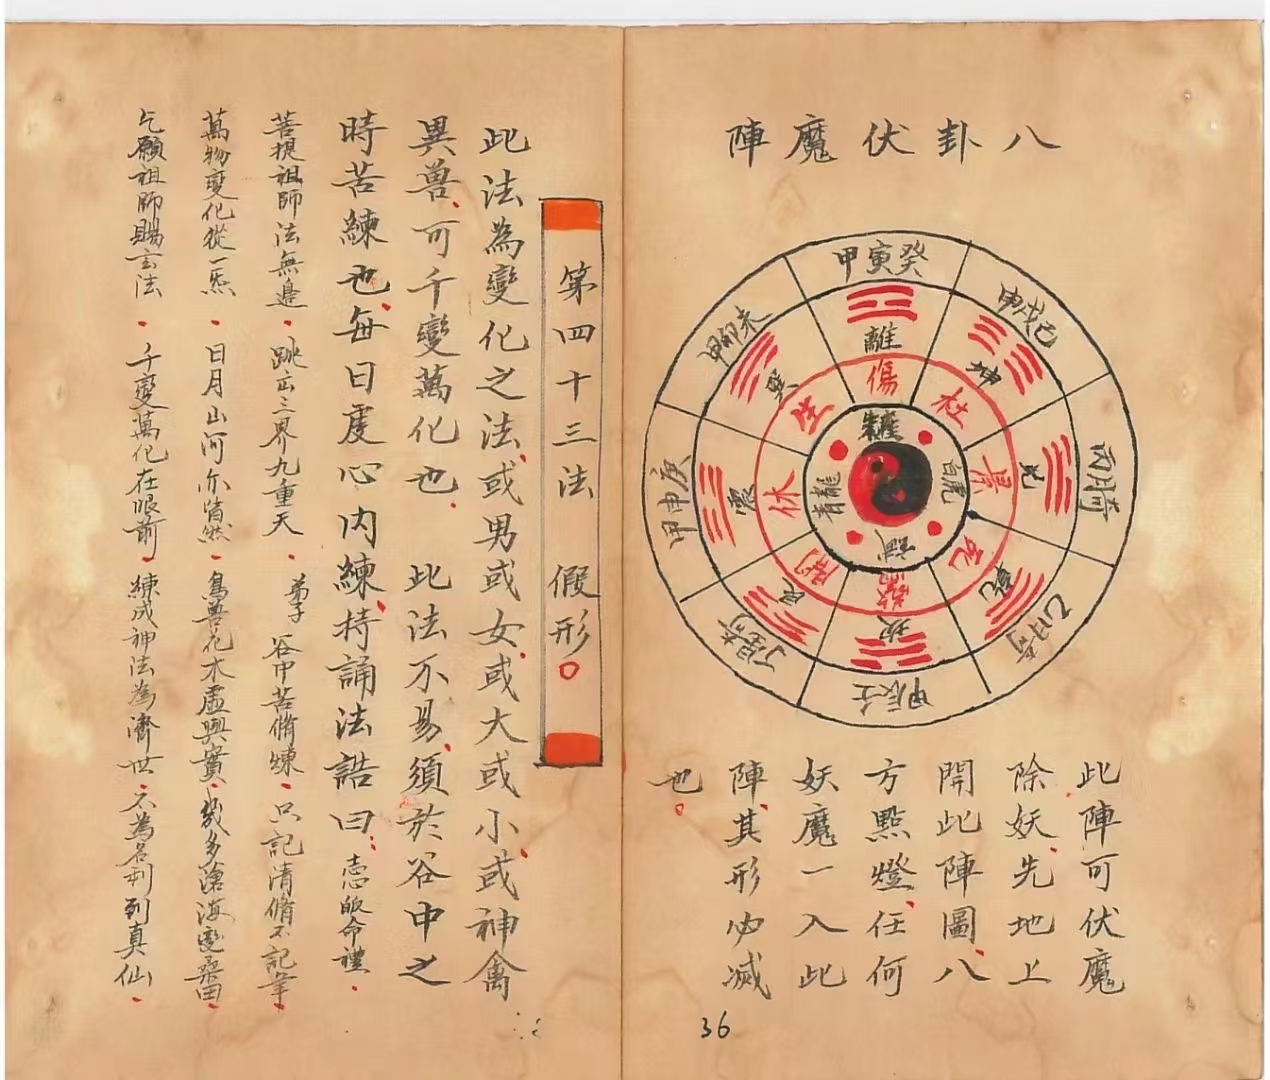 八卦伏魔陣
甲寅癸
離
傷
坤
杜
景
死
坎
開
艮
休
震
生
巽
甲申庚
甲辰壬
青龍
此陣可伏魔
除妖先地上
開此陣圖八
方點燈任何
妖魔一入此
陣其形必滅
也
36
第四十三法 假形
此法為變化之法或男或女或大或小或神禽
異兽可千變萬化也 此法不易須於谷中之
時苦練也每日虔心内練持誦法誥曰志皈命禮
菩提祖師法無邊 跳出三界九重天 弟子 谷中苦脩煉 只記清脩不記年
萬物變化從一炁 日月山河亦皆然 鳥兽花木虛與實 幾多滄海變桑田
乞願祖師賜玄法 千變萬化在眼前 練成神法為濟世 不為名利列真仙